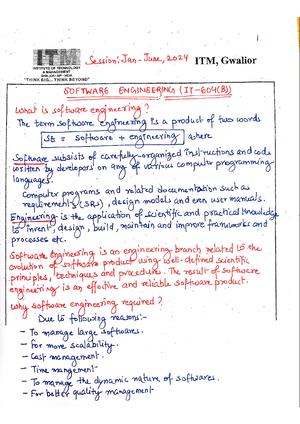 ITM
INSTITUTE OF TECHNOLOGY
& MANAGEMENT
GWALIOR • MP • INDIA
"THINK BIG... THINK BEYOND"
Session: Jan - June, 2024
ITM, Gwalior
SOFTWARE ENGINEERING (IT-604(B))
What is software engineering?
The term software engineering is a product of two words
SE = software + engineering where
Software subsists of carefully-organized instructions and code
written by developers on any of various computer programming
languages.
Computer programs and related documentation such as
requirements (SRS), design models and even user manuals.
Engineering is the application of scientific and practical knowledge
to invent, design, build, maintain and improve frameworks and
processes etc.
Software Engineering is an engineering branch related to the
evolution of software product using well-defined scientific
principles, techniques and procedure. The result of software
engineering is an effective and reliable software product.
Why software engineering required?
Due to following reasons:-
- To manage large softwares.
- For more scalability.
- Cost management.
- Time mangement-
- To manage the dynamic nature of softwares.
- For better quality management